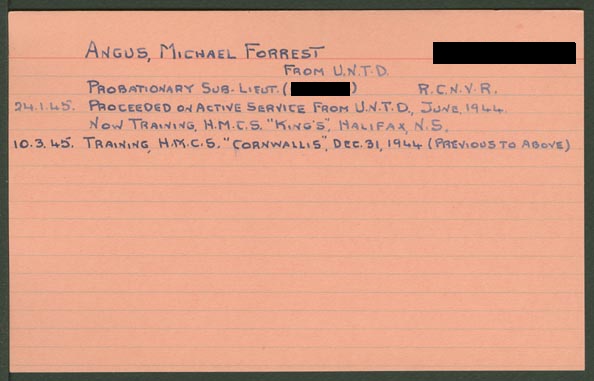 ANGUS, MICHAEL FORREST
FROM U.N.T.D.
PROBATIONARY SUB-LIEUT. ( ) R.C.N.V.R.
24.1.45. PROCEEDED ON ACTIVE SERVICE FROM U.N.T.D., JUNE, 1944.
NOW TRAINING, H.M.C.S. "KING'S", HALIFAX, N.S.
10.3.45. TRAINING, H.M.C.S. "CORNWALLIS", DEC. 31, 1944 (PREVIOUS TO ABOVE)